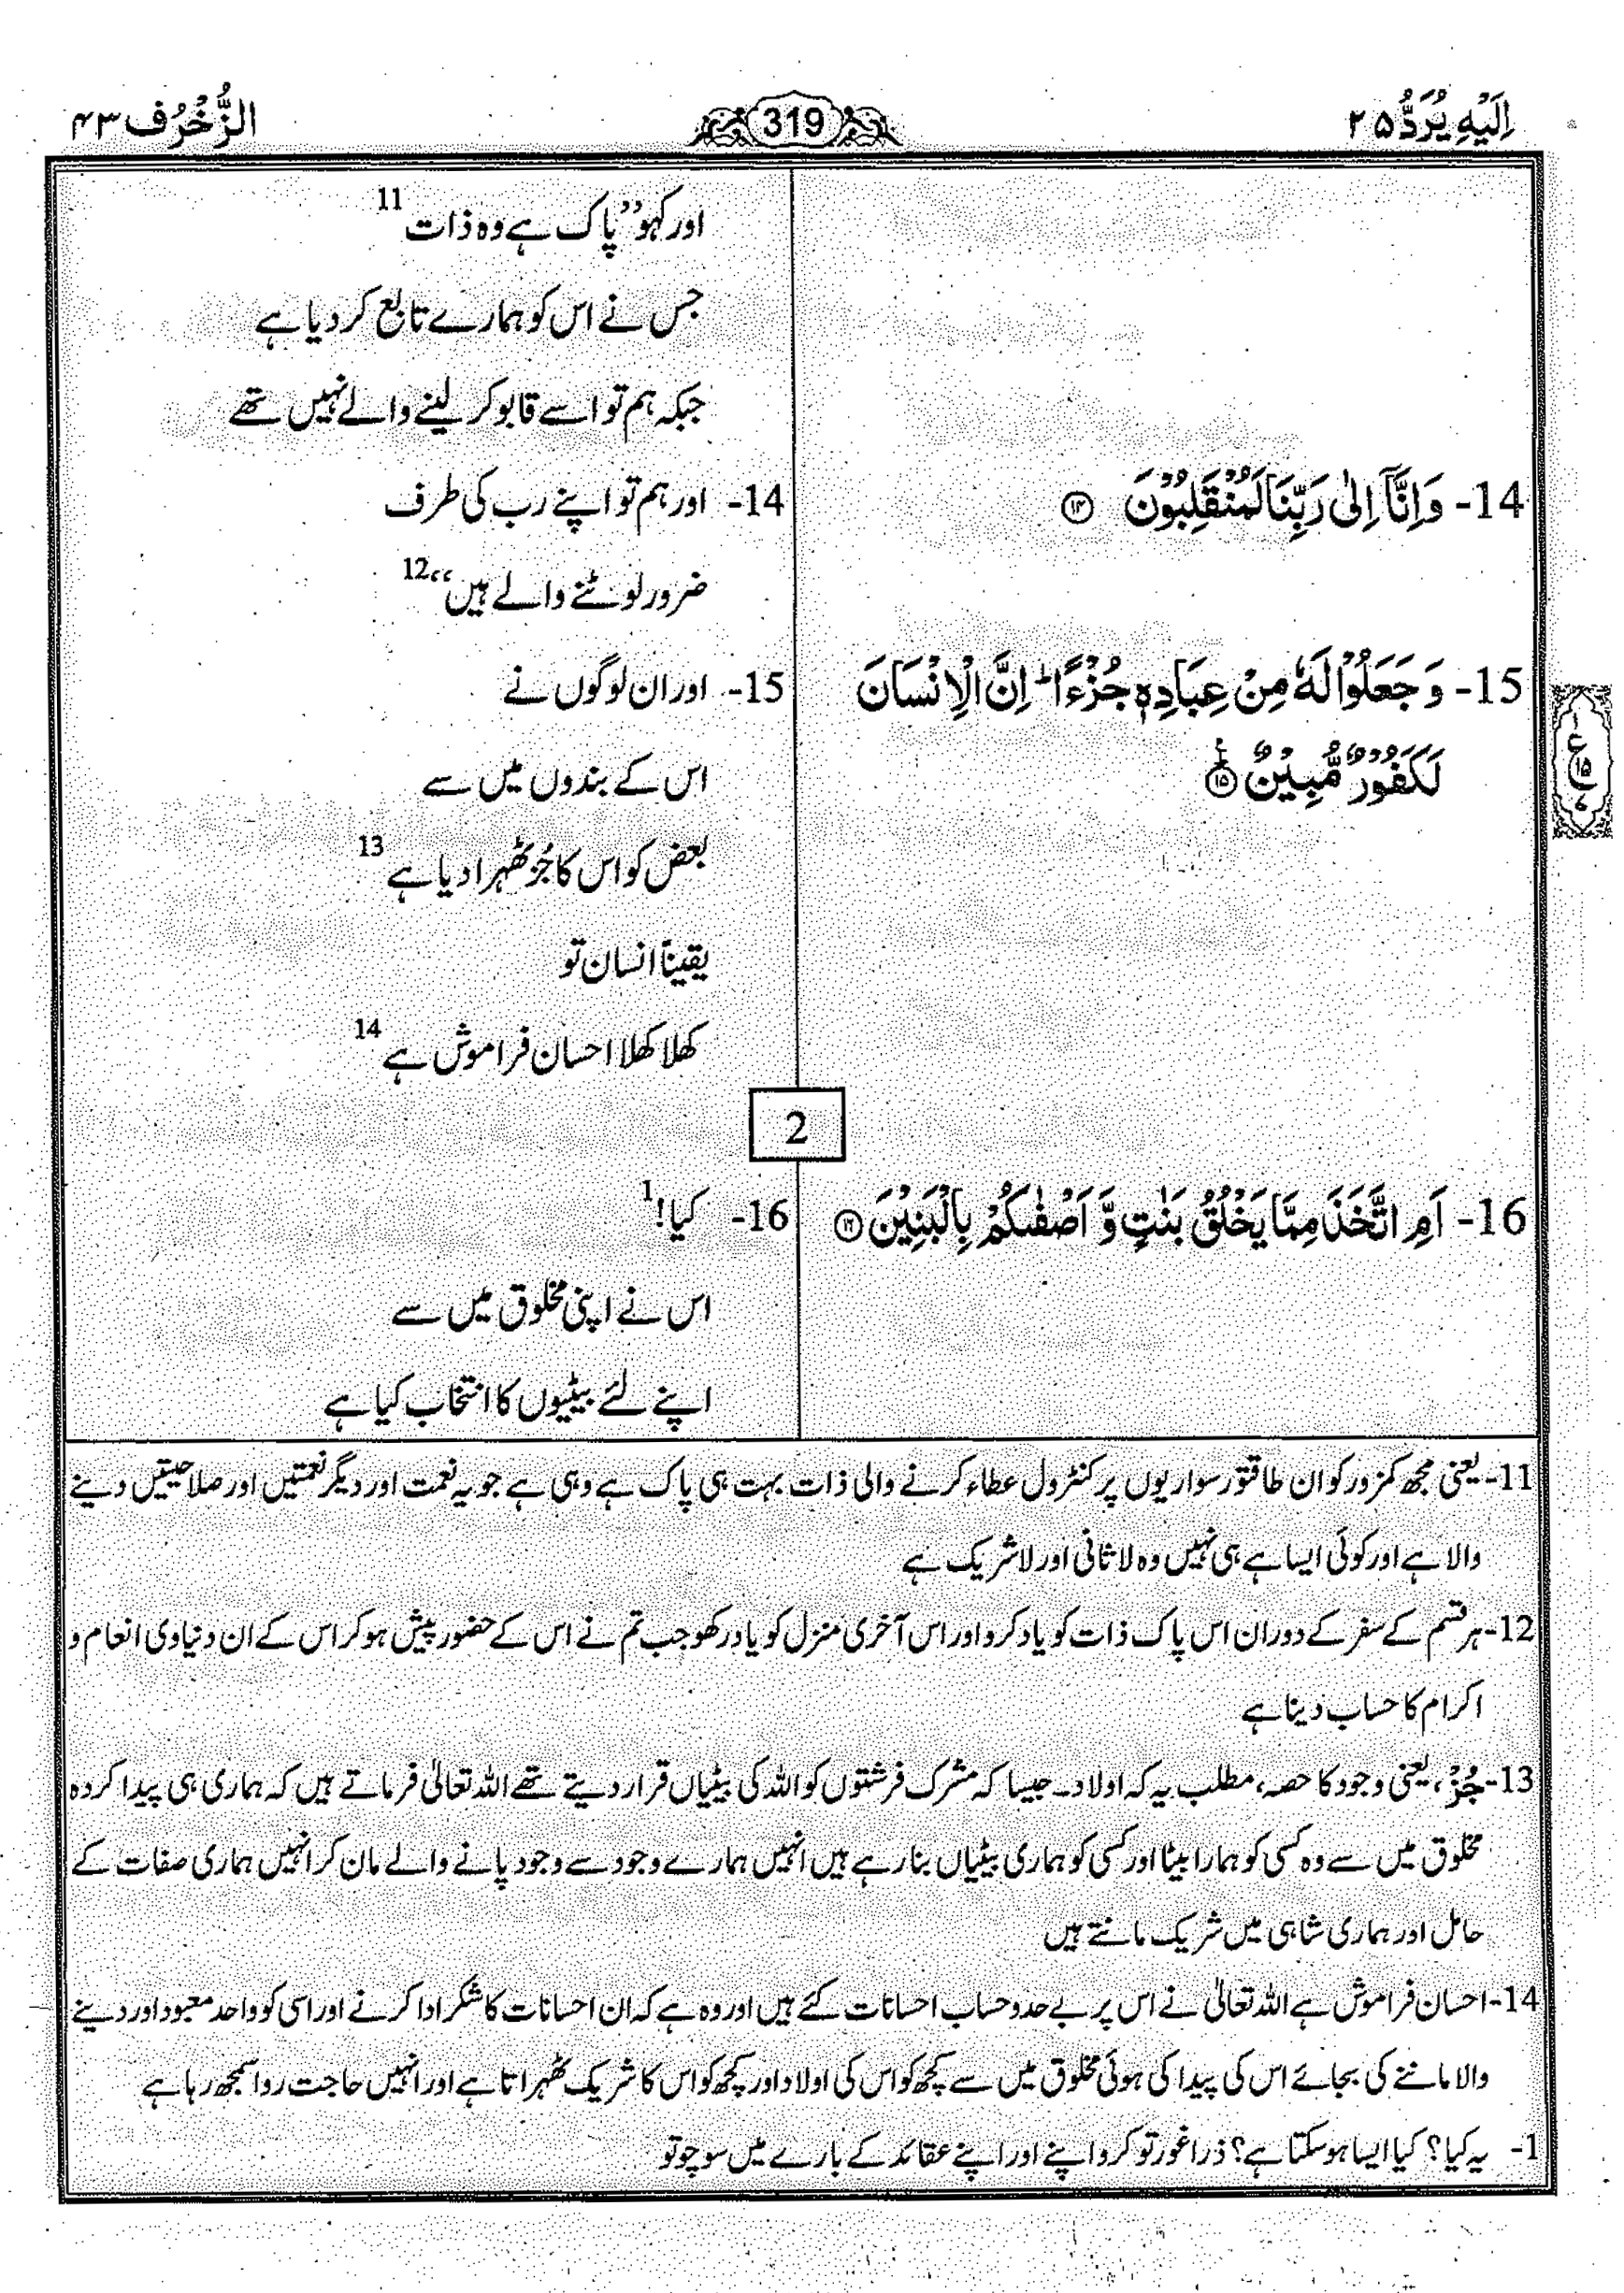 اِلَيْهِ يُرَدُّ ۲۵
319
الزُّخْرُف ۴۳
اور کہو ”پاک ہے وہ ذات 11
جس نے اس کو ہمارے تابع کر دیا ہے
جبکہ ہم تو اسے قابو کر لینے والے نہیں تھے
14- وَ اِنَّاۤ اِلٰی رَبِّنَا لَمُنْقَلِبُوْنَ ۝۱۴
14- اور ہم تو اپنے رب کی طرف
ضرور لوٹنے والے ہیں“ 12
15- وَ جَعَلُوْا لَهٗ مِنْ عِبَادِهٖ جُزْءًا ؕ اِنَّ الْاِنْسَانَ
لَكَفُوْرٌ مُّبِيْنٌ ۝۱۵
ع
۱۵
۷
15- اور ان لوگوں نے
اس کے بندوں میں سے
بعض کو اس کا جُز ٹھہرا دیا ہے 13
یقیناً انسان تو
کھلا کھلا احسان فراموش ہے 14
2
16- اَمِ اتَّخَذَ مِمَّا يَخْلُقُ بَنٰتٍ وَّ اَصْفٰىكُمْ بِالْبَنِيْنَ ۝۱۶
16- کیا! 1
اس نے اپنی مخلوق میں سے
اپنے لئے بیٹیوں کا انتخاب کیا ہے
11- یعنی مجھ کمزور کو ان طاقتور سواریوں پر کنٹرول عطاء کرنے والی ذات بہت ہی پاک ہے وہی ہے جو یہ نعمت اور دیگر نعمتیں اور صلاحیتیں دینے
والا ہے اور کوئی ایسا ہے ہی نہیں وہ لاثانی اور لاشریک ہے
12- ہر قسم کے سفر کے دوران اس پاک ذات کو یاد کرو اور اس آخری منزل کو یاد رکھو جب تم نے اس کے حضور پیش ہو کر اس کے ان دنیاوی انعام و
اکرام کا حساب دینا ہے
13- جُزْ، یعنی وجود کا حصہ، مطلب یہ کہ اولاد۔ جیسا کہ مشرک فرشتوں کو اللہ کی بیٹیاں قرار دیتے تھے اللہ تعالیٰ فرماتے ہیں کہ ہماری ہی پیدا کردہ
مخلوق میں سے وہ کسی کو ہمارا بیٹا اور کسی کو ہماری بیٹیاں بنا رہے ہیں انہیں ہمارے وجود سے وجود پانے والے مان کر انہیں ہماری صفات کے
حامل اور ہماری شاہی میں شریک مانتے ہیں
14- احسان فراموش ہے اللہ تعالیٰ نے اس پر بے حد و حساب احسانات کئے ہیں اور وہ ہے کہ ان احسانات کا شکر ادا کرنے اور اسی کو واحد معبود اور دینے
والا ماننے کی بجائے اس کی پیدا کی ہوئی مخلوق میں سے کچھ کو اس کی اولاد اور کچھ کو اس کا شریک ٹھہراتا ہے اور انہیں حاجت روا سمجھ رہا ہے
1- یہ کیا؟ کیا ایسا ہو سکتا ہے؟ ذرا غور تو کرو اپنے اور اپنے عقائد کے بارے میں سوچو تو